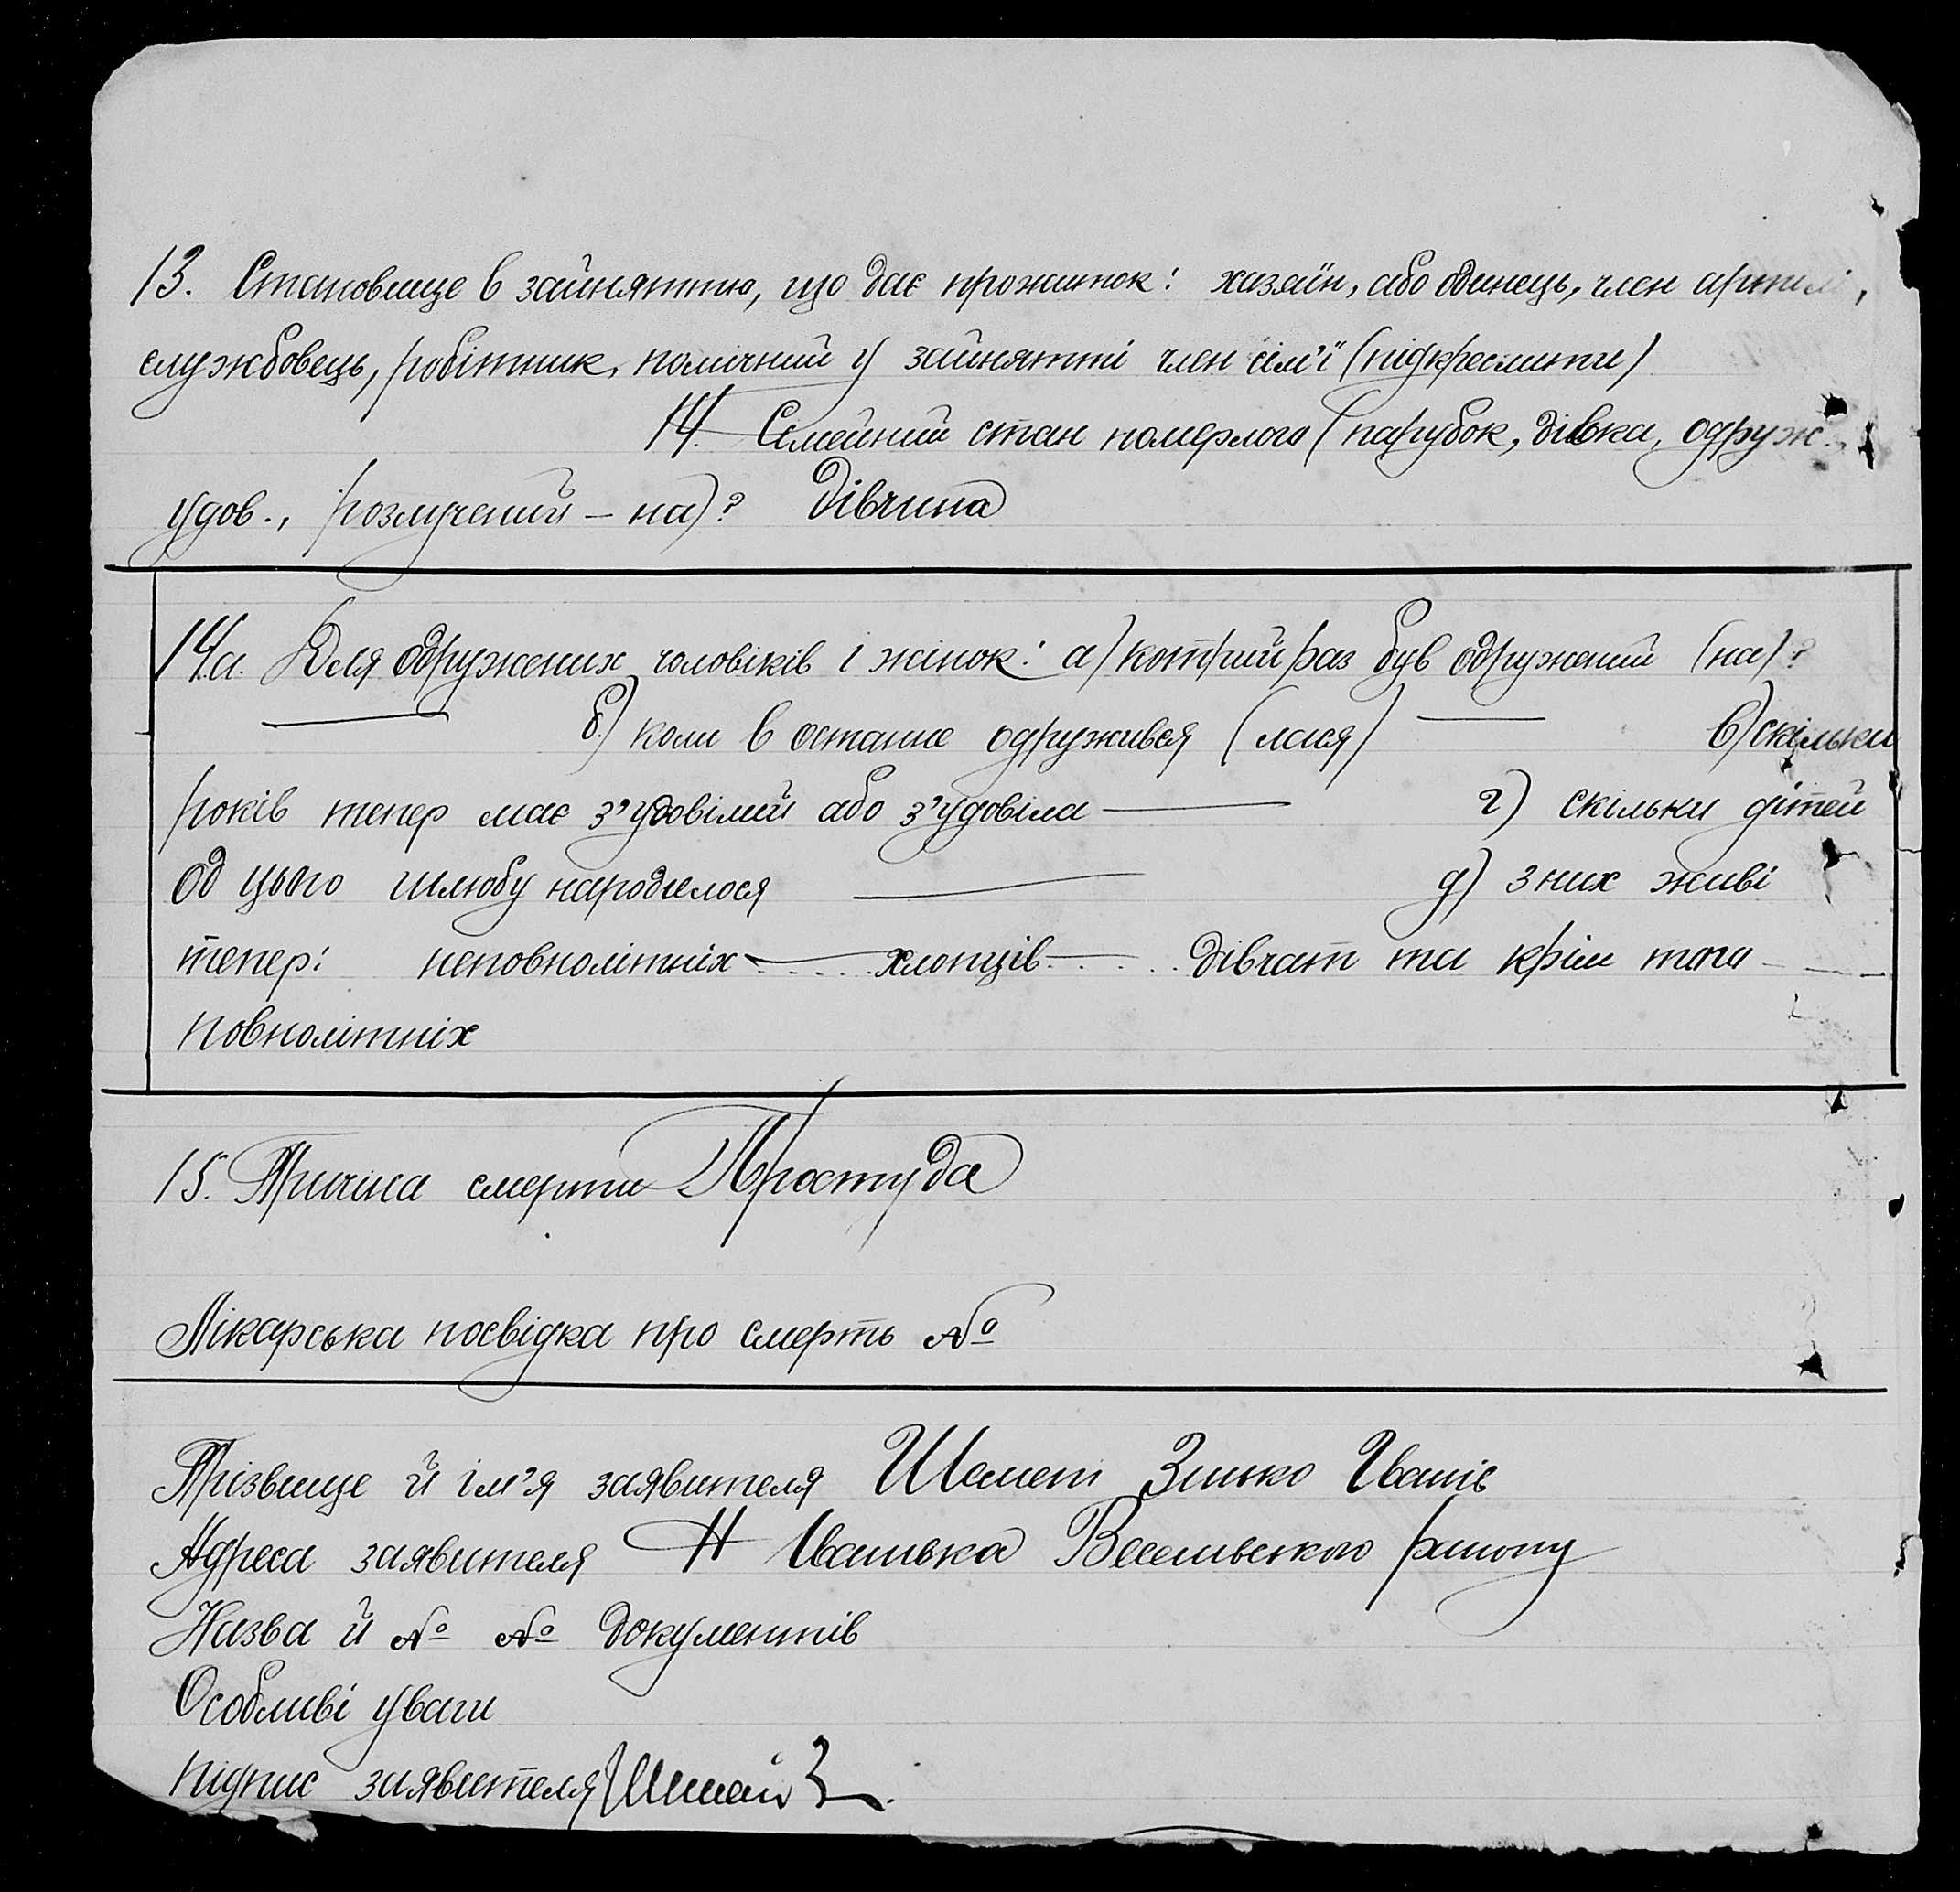 13. Становище в зайняттю, що дає прожиток: хазяїн, або одинець, член артілі,
службовець, робітник, помічний у зайнятті член сім'ї (підкреслити)
14. Семейний стан померлого (парубок, дівка, одруж.,
удов., розлучений – на)? дівчина
14а. Для одружених чоловіків і жінок: а) котрий раз був одружений (на)?
— б) коли в останнє одружився (лася) — в) скільки
років тепер має з'удовілий або з'удовіла — г) скільки дітей
од цього шлюбу народилося — д) з них живі
тепер: неповнолітніх — хлопців — дівчат та крім того —
повнолітніх
15. Причина смерти Простуда
Лікарська посвідка про смерть №
Прізвище й ім'я заявителя Шемет Зинько Іванів
Адреса заявителя Н Іванівка Весел. району
Назва й № № документів
Особливі уваги
підпис заявителя